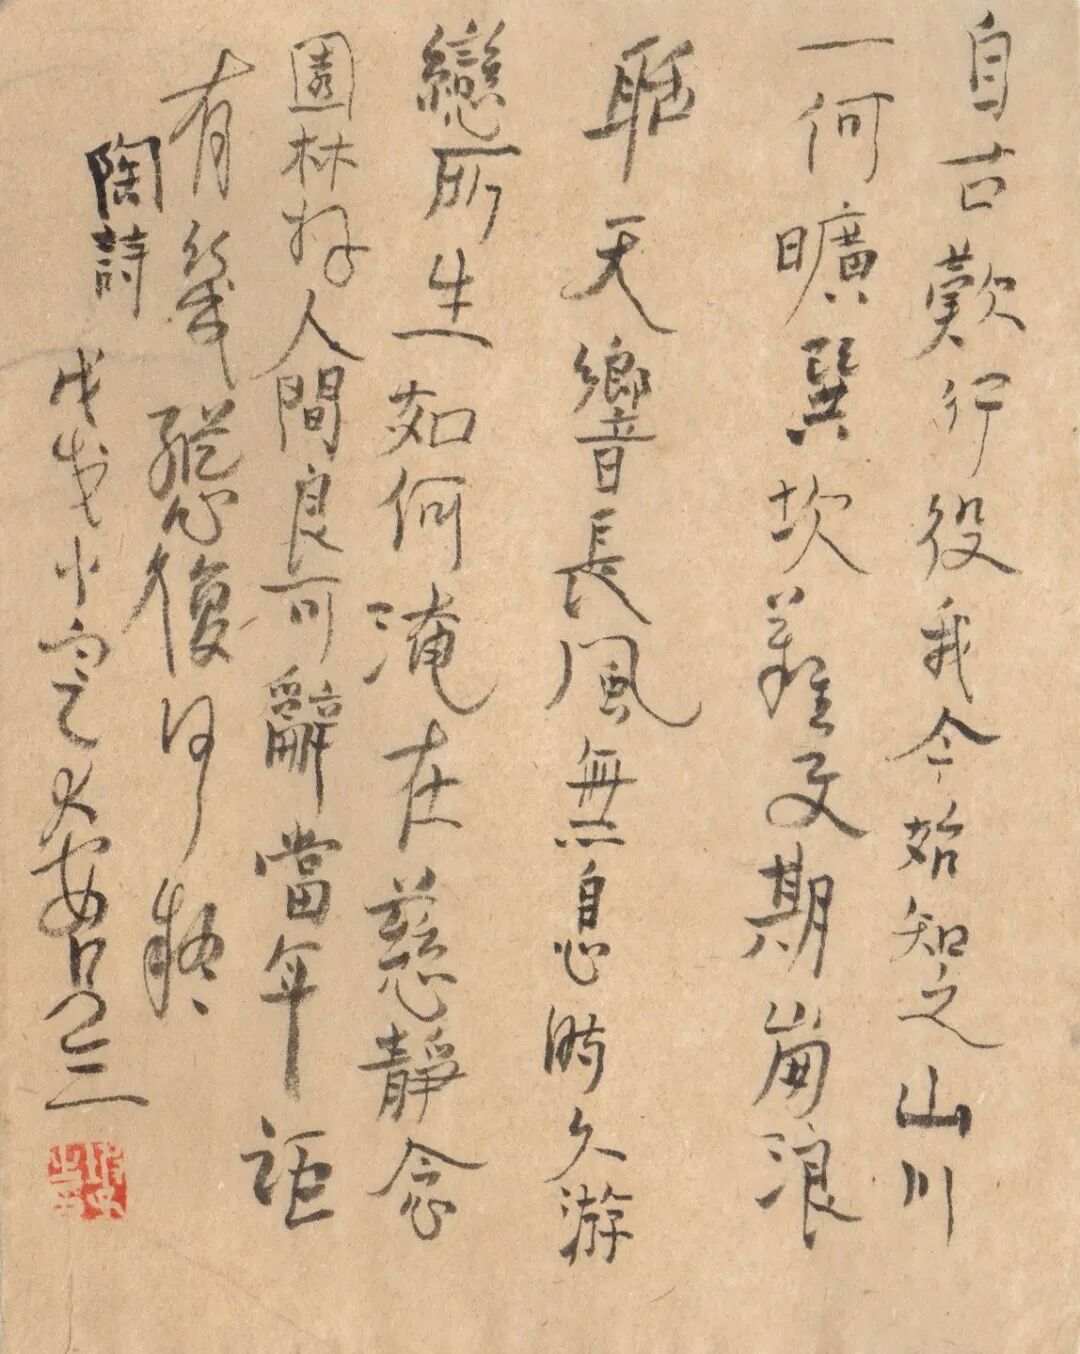 自古歎行役我今始知之山川
一何曠巽坎難与期崩浪
聒天響長風無息時久游
戀所生如何淹在慈靜念
園林好人間良可辭當年詎
有幾縱心復何疑
陶詩
戊戌小大安呂三